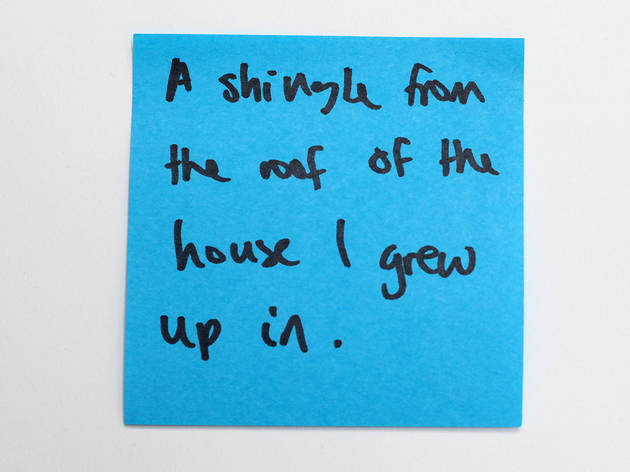 A shingle from
the roof of the
house I grew
up in.